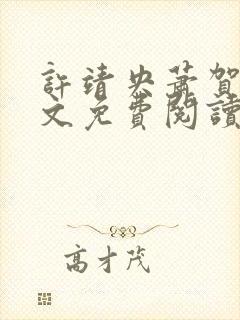 許靖央蕭賀
文免費閱讀
高才茂